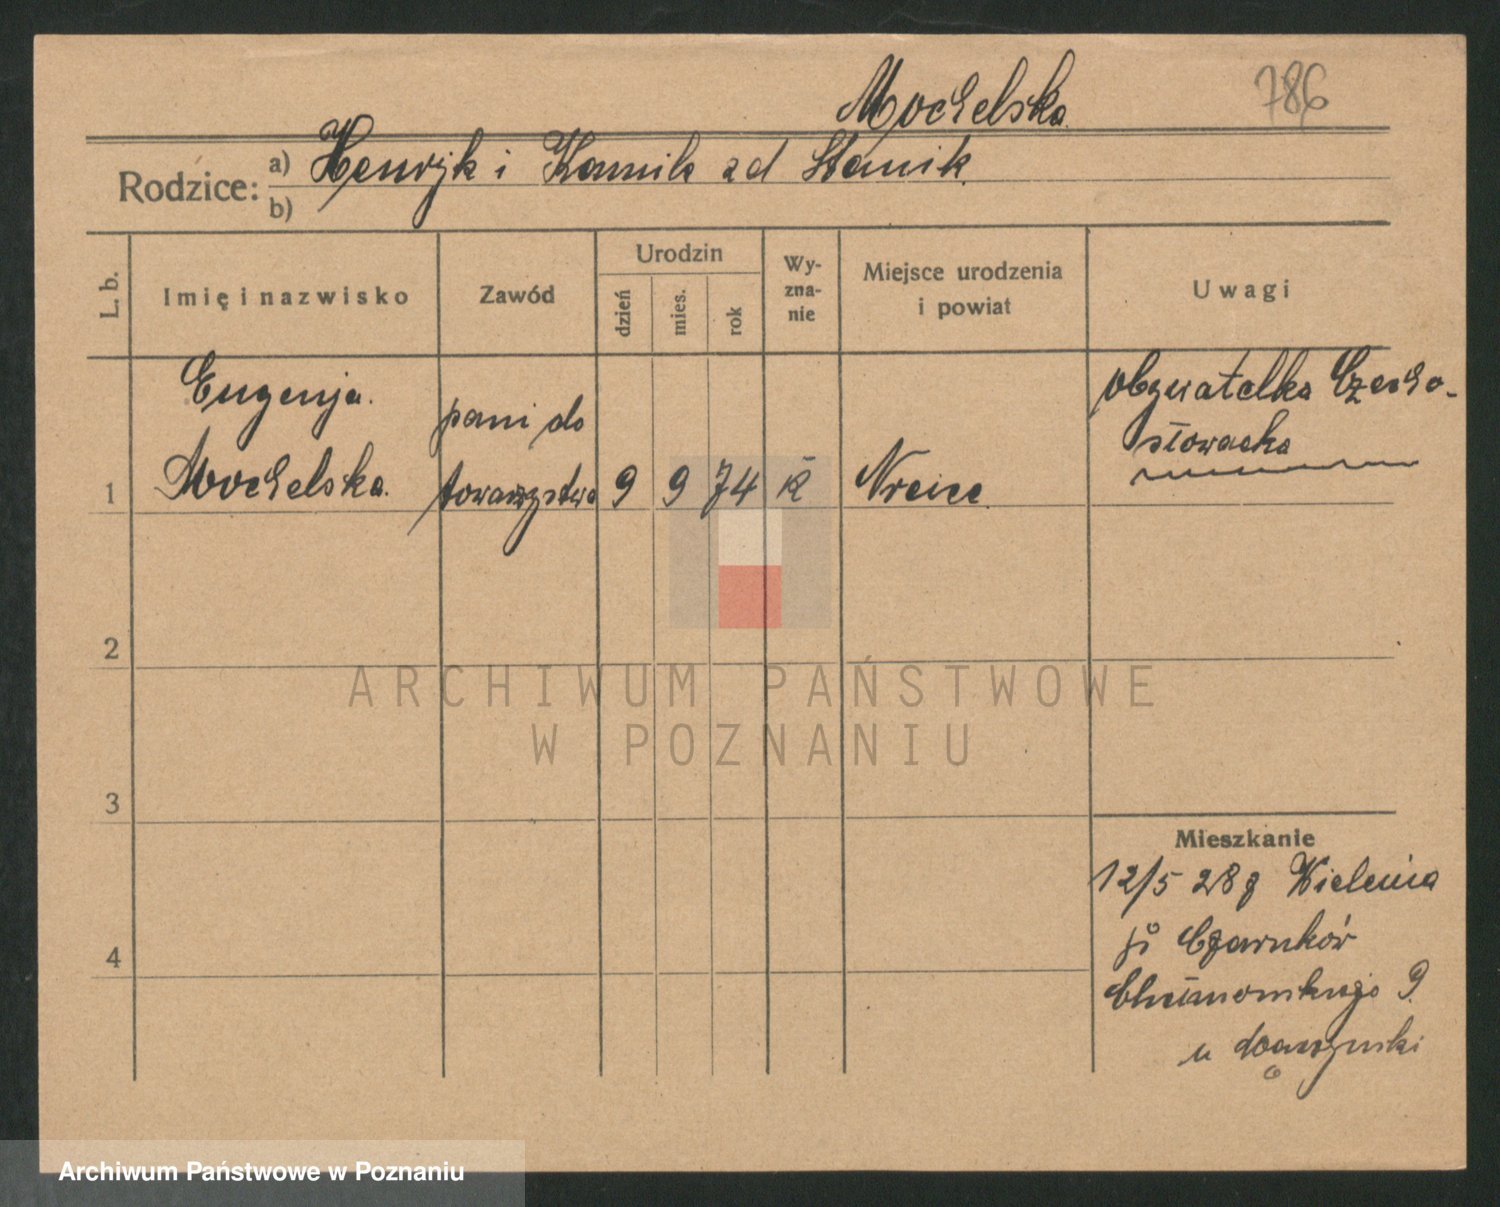 Mochelska
786
Rodzice: a) Henryk i Kamila zd Stanik
b)
L. b. Imię i nazwisko Zawód Urodzin dzień mies. rok Wy-zna-nie Miejsce urodzenia i powiat Uwagi
Eugenja pani do obywatelka Czecho-
słowacka
1 Mochelska towarzystwa 9 9 74 k
2
3
4
Mieszkanie
12/5 28 z Wielenia
Czarnków
9
u
ARCHIWUM PAŃSTWOWE
W POZNANIU
Archiwum Państwowe w Poznaniu